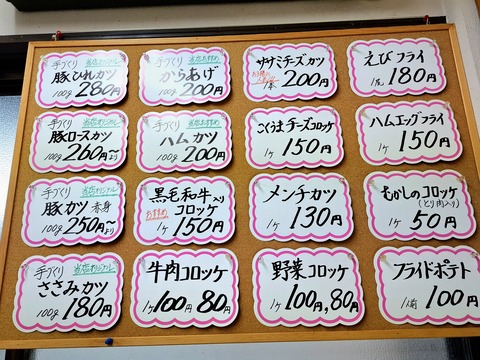 手づくり 当店オリジナル
豚ひれカツ
100g 280円
手づくり 当店おすすめ
からあげ
100g 200円
ササミチーズカツ
1本 200円
えびフライ
1尾 180円
手づくり 当店オリジナル
豚ロースカツ
100g 260円〜より
手づくり 当店おすすめ
ハムカツ
100g 200円
こくうまチーズコロッケ
1ケ 150円
ハムエッグフライ
1ケ 150円
手づくり 当店オリジナル
豚カツ 赤身
100g 250円〜より
黒毛和牛入り
おすすめ コロッケ
1ケ 150円
メンチカツ
1ケ 130円
むかしのコロッケ
(とり肉入り)
1ケ 50円
手づくり 当店オリジナル
ささみカツ
100g 180円
牛肉コロッケ
1ケ 100円 80円
野菜コロッケ
1ケ 100円, 80円
フライドポテト
1人前 100円